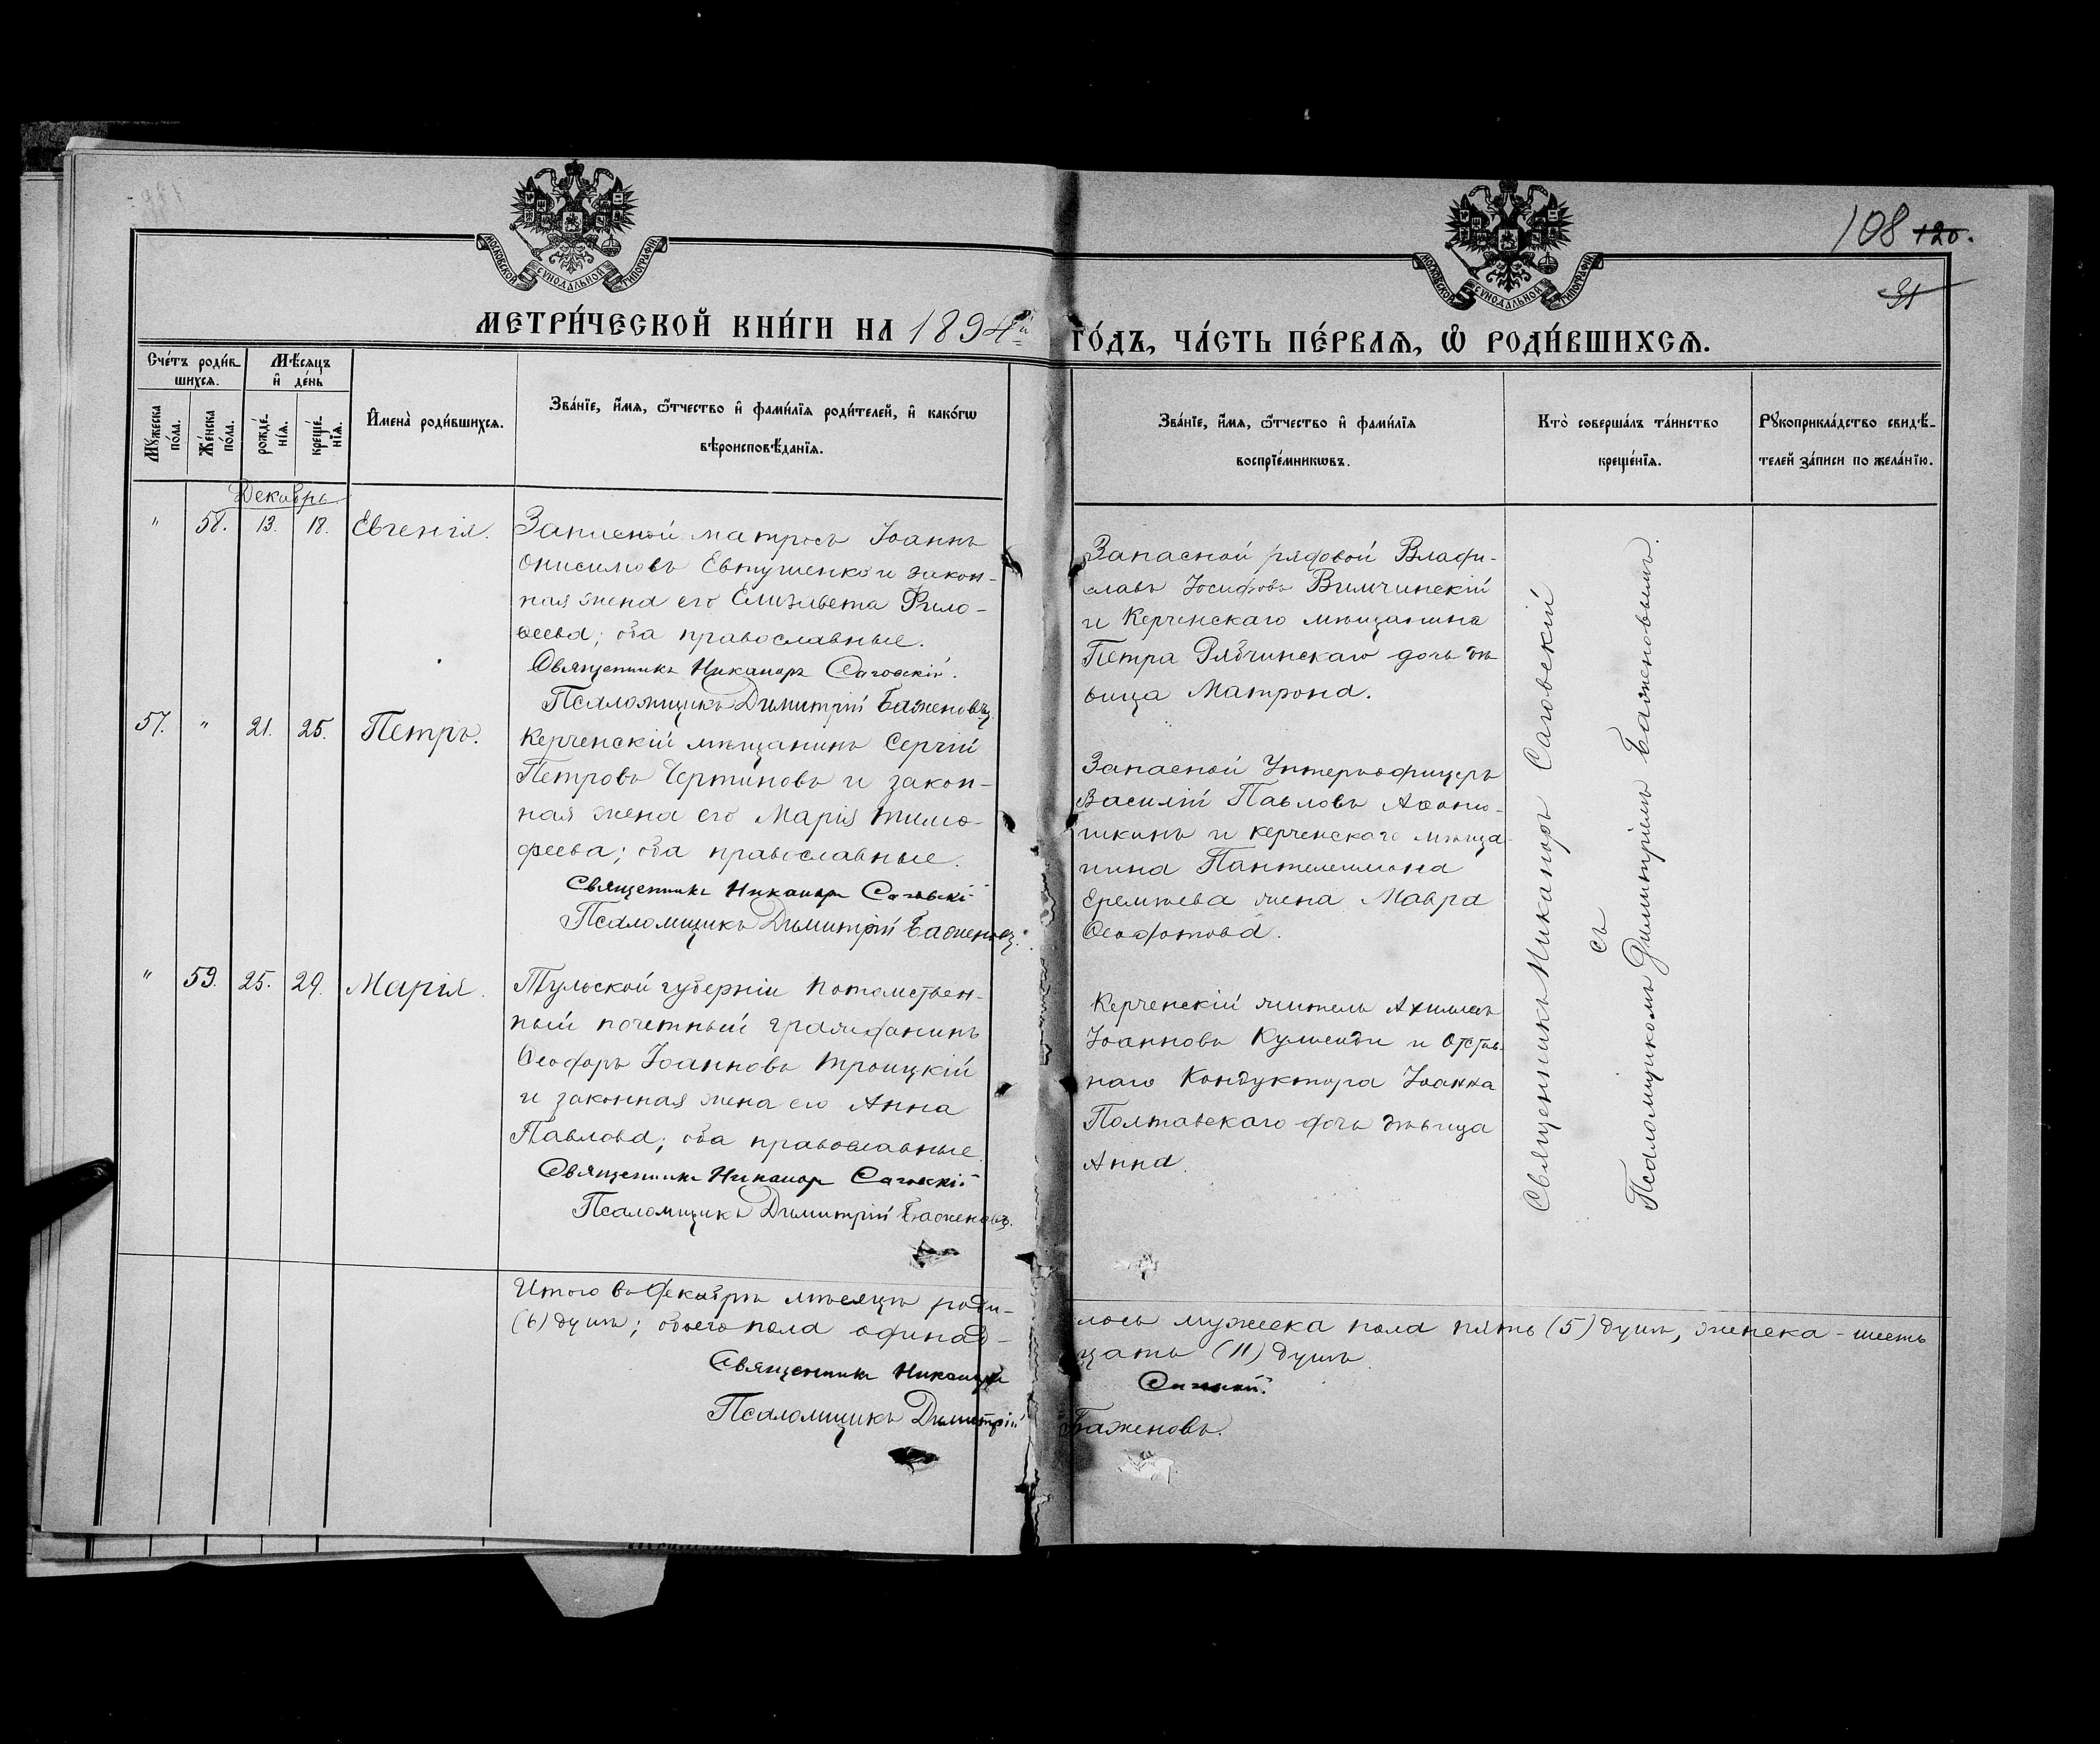 МОСКОВСКОЙ СѴНОДАЛЬНОЙ ТИПОГРАФІИ
МОСКОВСКОЙ СѴНОДАЛЬНОЙ ТИПОГРАФІИ
108 120.
31
МЕТРИ́ЧЕСКОЙ КНИ́ГИ НА 1894й ГО́ДЪ, ЧА́СТЬ ПЕ́РВАѦ, Ѡ РОДИ́ВШИХСѦ.
Сче́тъ роди́в
шихсѧ.
Мѣ́сяцъ
и҆ де́нь
Мꙋ́жеска по́ла.
Же́нска по́ла.
рожде́нїѧ.
креще́нїѧ.
И҆мена̀ роди́вшихсѧ.
Зва́нїе, и҆́мѧ, ѻ҆́тчество и҆ фами́лїѧ роди́телей, и҆ како́гѡ
вѣроисповѣ́данїѧ.
Зва́нїе, и҆́мѧ, ѻ҆́тчество и҆ фами́лїѧ
воспрїе́мникѡвъ.
Кто̀ соверша́лъ та́инство
креще́нїѧ.
Рꙋкоприкла́дство свидѣ́-
телей за́писи по жела́нїю.
Декабрь
" 58. 13. 18. Евгенія.
Запасной матросъ Іоаннъ
Онисимовъ Евтушенко и закон-
ная жена его Елизавета Фило-
ѳеева; оба православные.
Священникъ Никаноръ Саговскій.
Псаломщикъ Димитрій Баженовъ.
Запасной рядовой Влади-
славъ Іосифовъ Вильчинскій
и Керченскаго мѣщанина
Петра Рябчинскаго дочь дѣ
вица Матрона.
57. " 21. 25. Петръ.
Керченскій мѣщанинъ Сергій
Петровъ Чертиновъ и закон-
ная жена его Марія Тимо-
феева; оба православные.
Священникъ Никаноръ Саговскі
Псаломщикъ Димитрій Баженовъ.
Запасной Унтеръ-офицеръ
Василій Павловъ
шкинъ и керченскаго мѣща-
нина Пантелеимона
Еремѣева жена Мавра
" 59. 25. 29. Марія.
Тульской губерніи потомствен-
ный почетный гражданинъ
Ѳеодоръ Іоанновъ Троицкій
и законная жена его Анна
Павлова; оба православные.
Священникъ Никаноръ Саговскій
Псаломщикъ Димитрій Баженовъ.
Керченскій житель Ахиллесъ
Іоанновъ и Отстав-
наго Кондуктора Іоанна
Полтавскаго дочь дѣвица
Анна.
Священникъ Никаноръ Саговскій
съ
Псаломщикомъ Димитріемъ Баженовымъ.
Итого въ декабрѣ мѣсяцѣ роди-
лось мужеска пола пять (5) душъ, женска - шесть
(6) душъ; обоего пола одинад-
цать (11) душъ.
Священникъ Никаноръ
Саговскій.
Псаломщикъ Димитрій
Баженовъ.